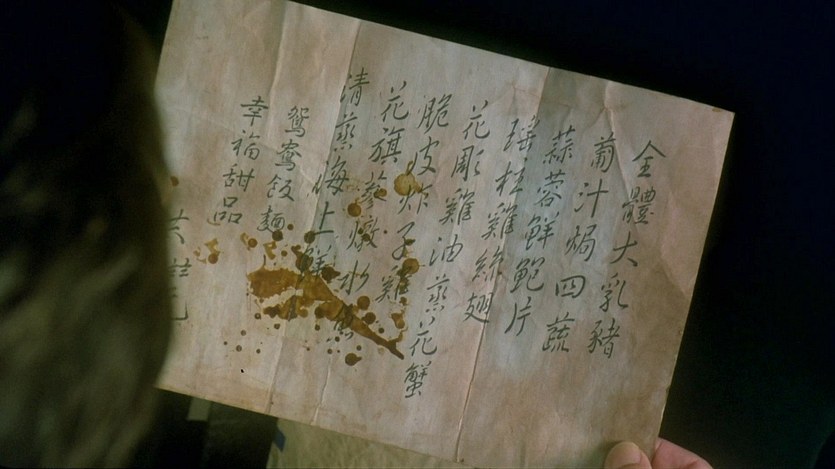 全體大乳豬
葡汁焗四蔬
蒜蓉鮮鮑片
瑤柱雞絲翅
花彫雞油蒸花蟹
脆皮炸子雞
花旗蔘燉水魚
清蒸海上鮮
鴛鴦飯麵
幸福甜品